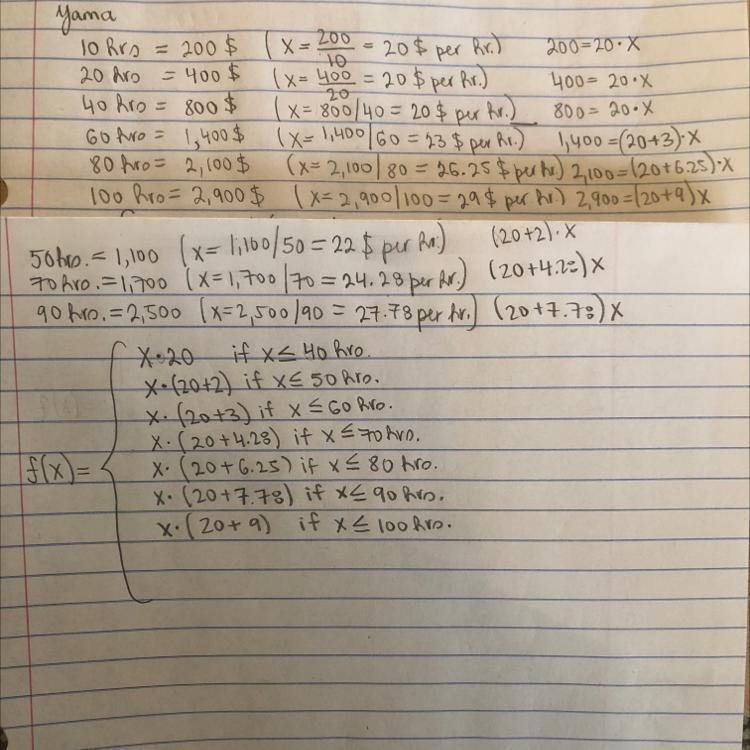 Yama
10 hrs = 200 $ (x = 200/10 = 20 $ per hr.) 200=20·x
20 hrs = 400 $ (x = 400/20 = 20 $ per hr.) 400= 20·x
40 hrs = 800 $ (x = 800/40 = 20 $ per hr.) 800= 20·x
60 hrs = 1,400 $ (x = 1,400/60 = 23 $ per hr.) 1,400 = (20+3)·x
80 hrs = 2,100 $ (x = 2,100/80 = 26.25 $ per hr.) 2,100=(20+6.25)·x
100 hrs = 2,900 $ (x = 2,900/100 = 29 $ per hr.) 2,900=(20+9)x
50 hrs. = 1,100 (x= 1,100/50 = 22 $ per hr.) (20+2)·x
70 hrs. = 1,700 (x = 1,700/70 = 24.28 per hr.) (20+4.28)x
90 hrs. = 2,500 (x=2,500/90 = 27.78 per hr.) (20+7.78)x
f(x) = {
x·20 if x ≤ 40 hrs.
x·(20+2) if x ≤ 50 hrs.
x·(20+3) if x ≤ 60 hrs.
x·(20+4.28) if x ≤ 70 hrs.
x·(20+6.25) if x ≤ 80 hrs.
x·(20+7.78) if x ≤ 90 hrs.
x·(20+9) if x ≤ 100 hrs.